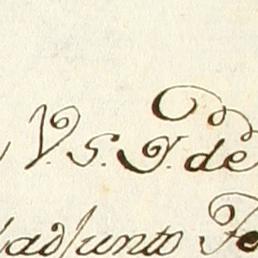 V. S. Y. de
adjunto Fe